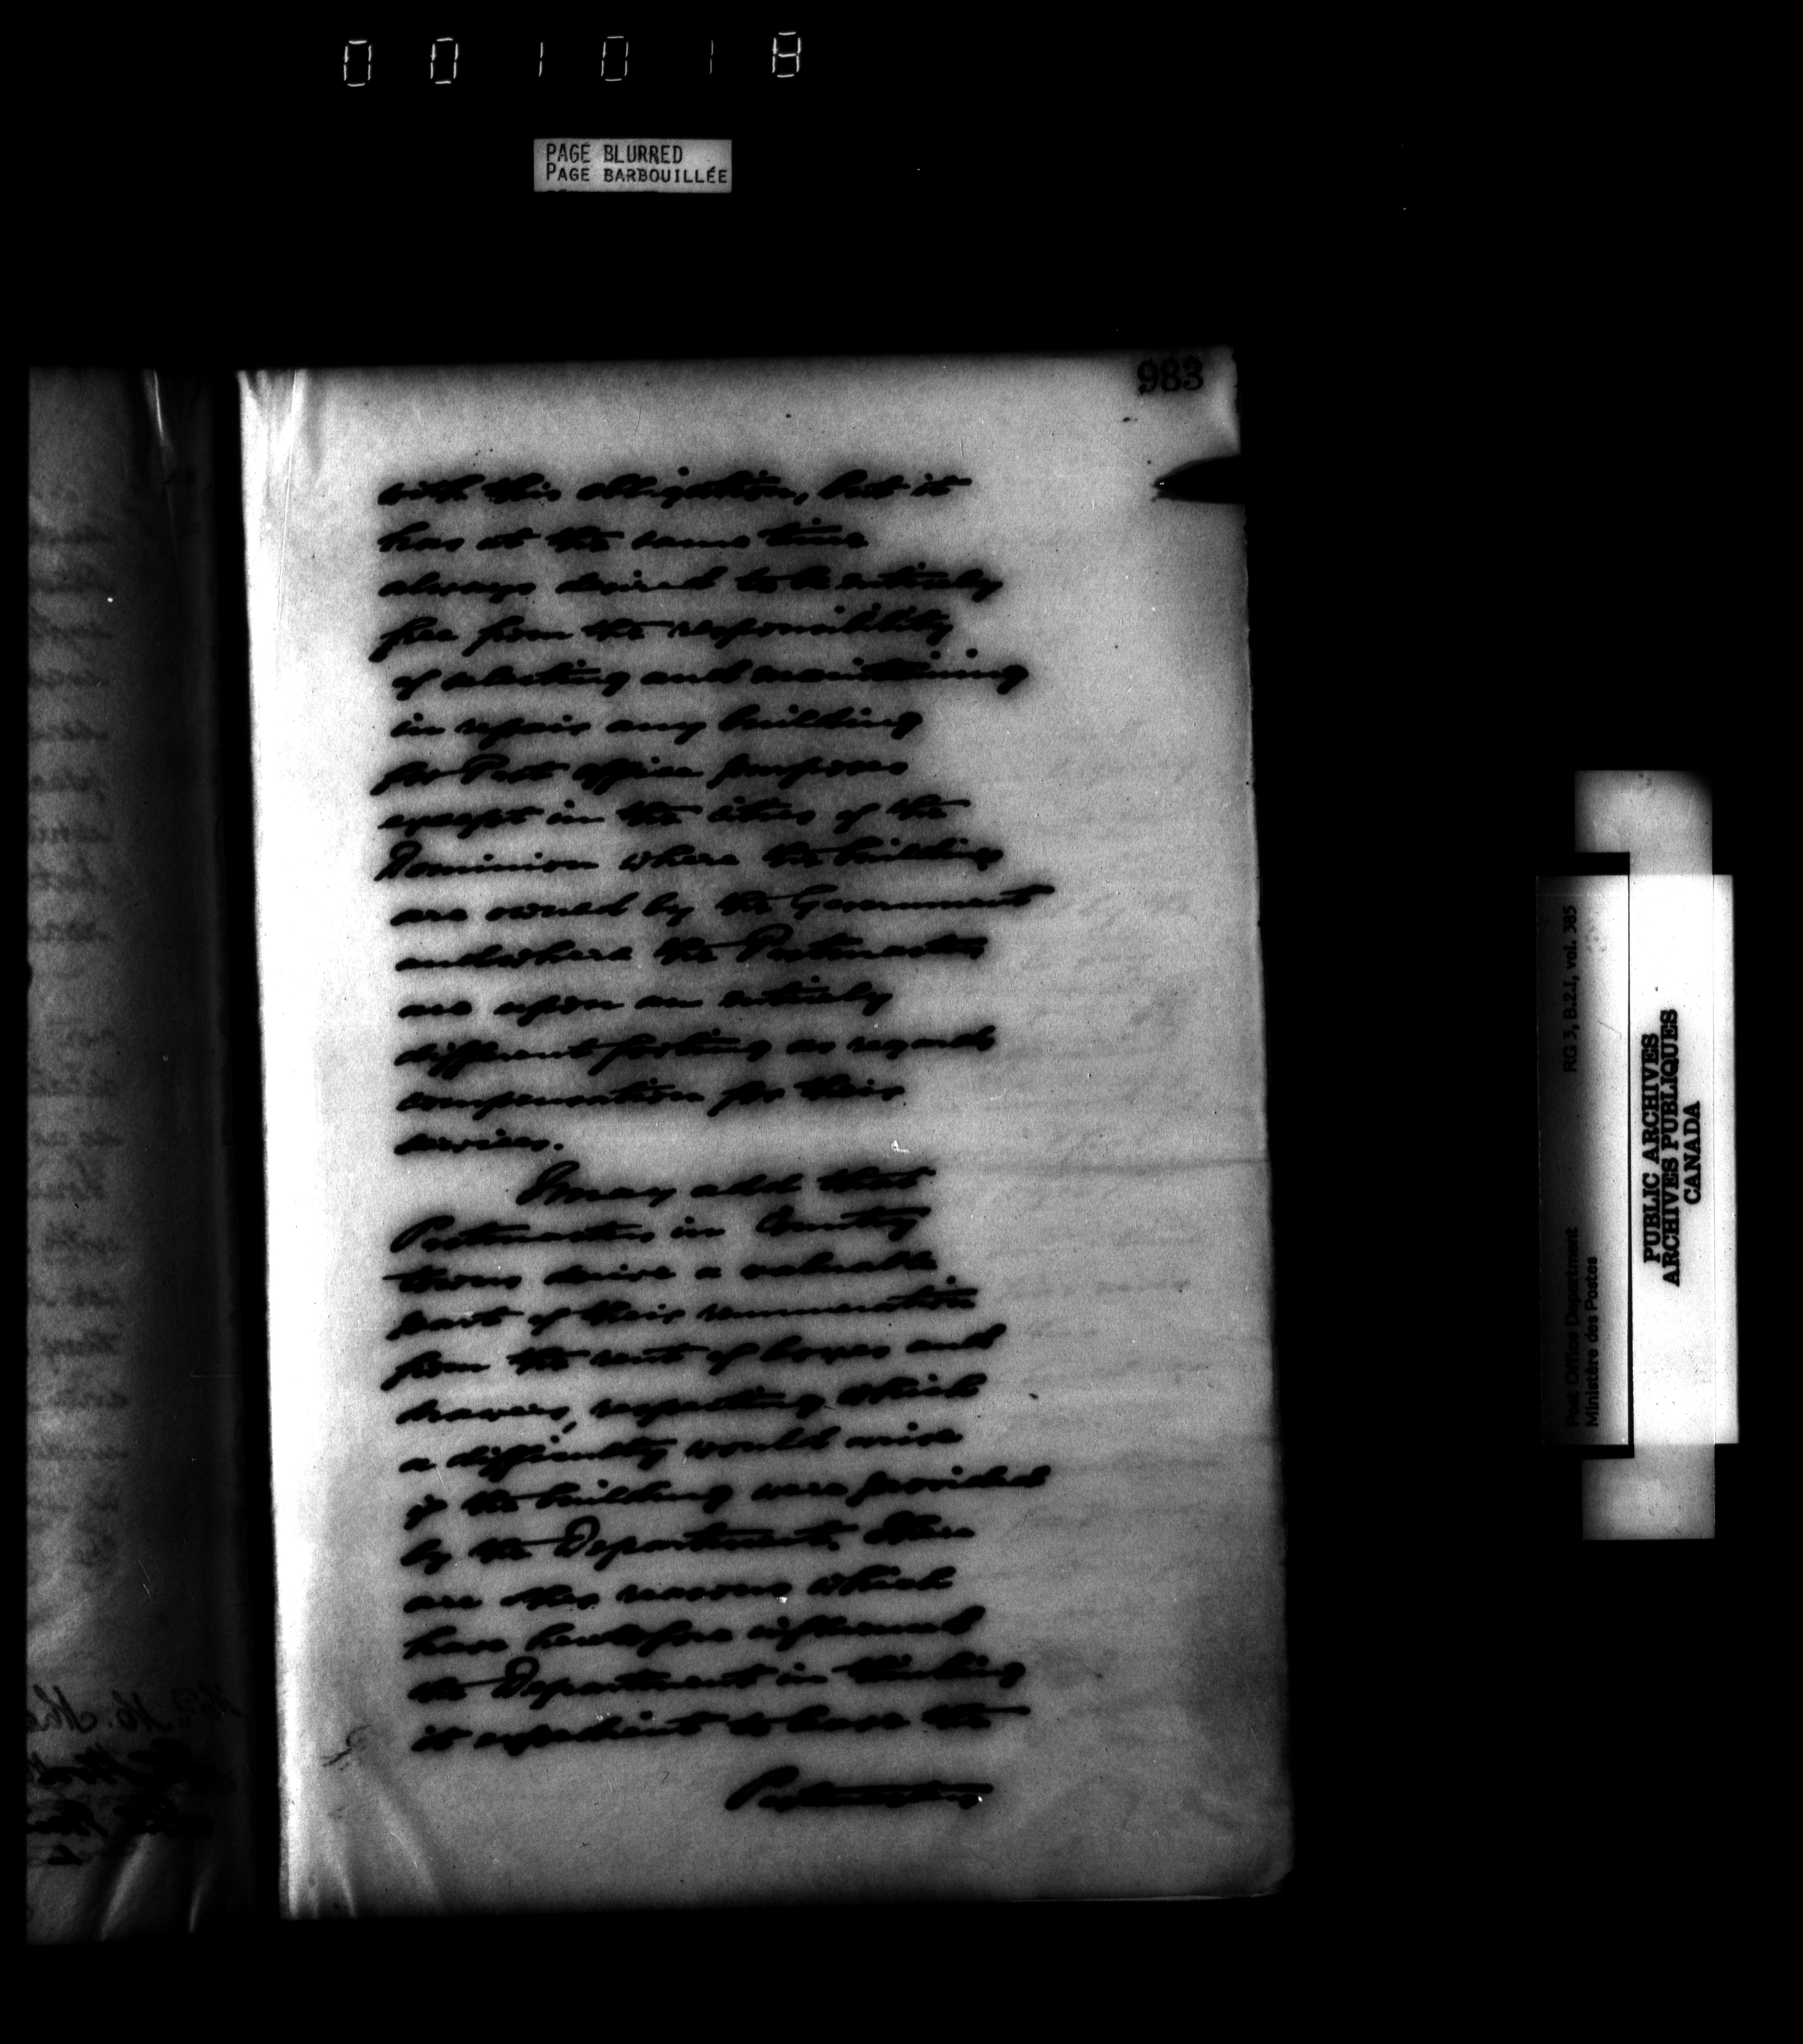 001018
PAGE BLURRED
PAGE BARBOUILLÉE
983
with this obligation, but it
has at the same time
always desired to be entirely
free from the responsibility
of selecting and maintaining
in repair any building
for Post office purposes
except in the cities of the
Dominion where the buildings
are owned by the Government
and where the Postmasters
are upon an entirely
different footing as regards
compensation for their
services.
I may add that
Postmasters in Country
towns derive a valuable
part of their remuneration
from the rent of boxes and
drawers, respecting which
a difficulty would arise
if the building were provided
by the Department. These
are the reasons which
have heretofore influenced
the Department in thinking
it expedient to leave the
Postmasters
Post Office Department RG 3, B.2.1, vol. 385
Ministère des Postes
PUBLIC ARCHIVES
ARCHIVES PUBLIQUES
CANADA